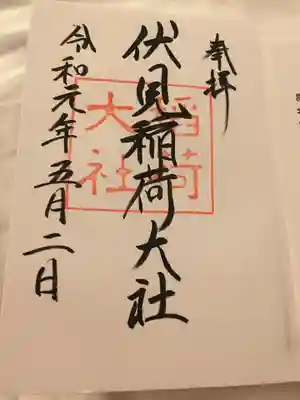 奉拝
伏見稲荷大社
稲荷
大社
令和元年五月二日